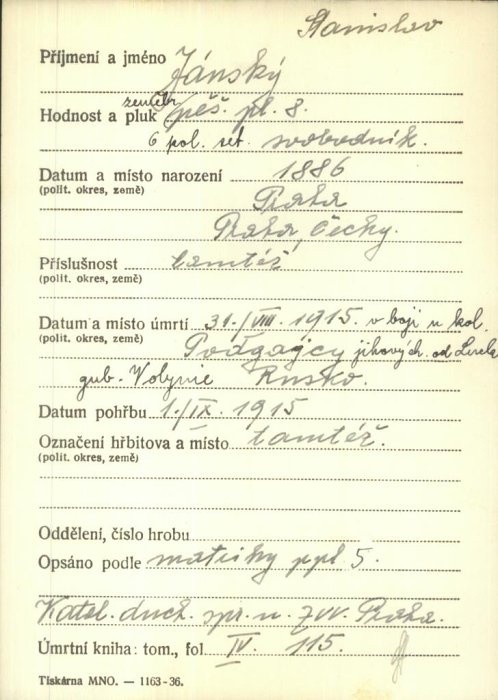 Stanislav
Příjmení a jméno Jánský
zeměbr.
Hodnost a pluk pěš. pl. 8.
6 pol. set. svobodník.
Datum a místo narození 1886
(polit. okres, země) Praha
Praha, Čechy.
Příslušnost tamtéž
(polit. okres, země)
Datum a místo úmrtí 31./VIII. 1915. v boji u kol.
(polit. okres, země) Podgajcy jihových. od Lucka
gub. Volynie Rusko.
Datum pohřbu 1./IX. 1915
Označení hřbitova a místo tamtéž.
(polit. okres, země)
Oddělení, číslo hrobu
Opsáno podle matriky ppl 5.
Katol. duch. spr. u. ZVV. Praha.
Úmrtní kniha: tom., fol. IV. 115.
Tiskárna MNO. — 1163-36.